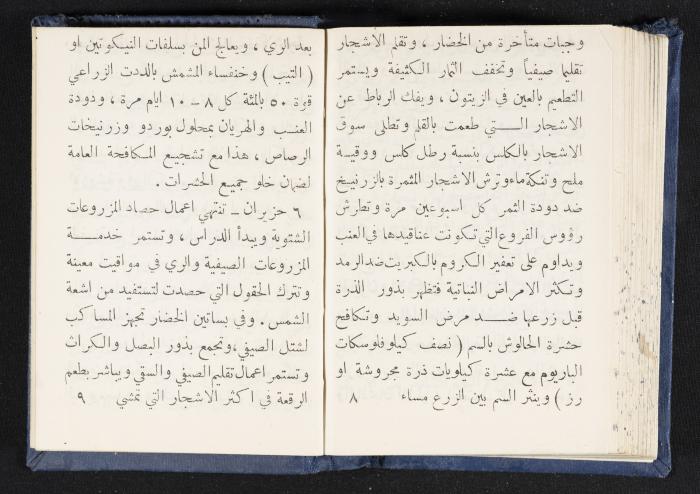 وجبات متأخرة من الخضار ، وتقلم الاشجار
تقليما صيفياً وتخفف الثمار الكثيفة ويستمر
التطعيم بالعين في الزيتون ، ويفك الرباط عن
الاشجار التي طعمت بالقلم وتطلى سوق
الاشجار بالكلس بنسبة رطل كلس ووقية
ملح وتنكة ماء وترش الاشجار المثمرة بالزرنيخ
ضد دودة الثمر كل اسبوعين مرة وتطرش
رؤوس الفروع التي تكونت عناقيدها في العنب
ويداوم على تعفير الكروم بالكبريت ضد الرمد
وتكثر الامراض النباتية فتطهر بذور الذرة
قبل زرعها ضد مرض السويد وتكافح
حشرة الحالوش بالسم ( نصف كيلو فلوسكات
الباريوم مع عشرة كيلويات ذرة مجروشة او
رز ) وينثر السم بين الزرع مساء
٨
بعد الري ، ويعالج المن بسلفات النيكوتين او
( التيب ) وخنفساء المشمش بالددت الزراعي
قوة ٥٠ بالمئة كل ٨ - ١٠ ايام مرة ، ودودة
العنب والهريان بمحلول بوردو وزرنيخات
الرصاص ، هذا مع تشجيع المكافحة العامة
لضمان خلو جميع الحشرات .
٦ حزيران - تنتهي اعمال حصاد المزروعات
الشتوية ويبدأ الدراس ، وتستمر خدمة
المزروعات الصيفية والري في مواقيت معينة
وتترك الحقول التي حصدت لتستفيد من اشعة
الشمس . وفي بساتين الخضار تجهز المساكب
لشتل الصيفي ، وتجمع بذور البصل والكراث
وتستمر اعمال تقليم الصيفي والسقي ويباشر بطعم
الرقعة في اكثر الاشجار التي تمشي
٩